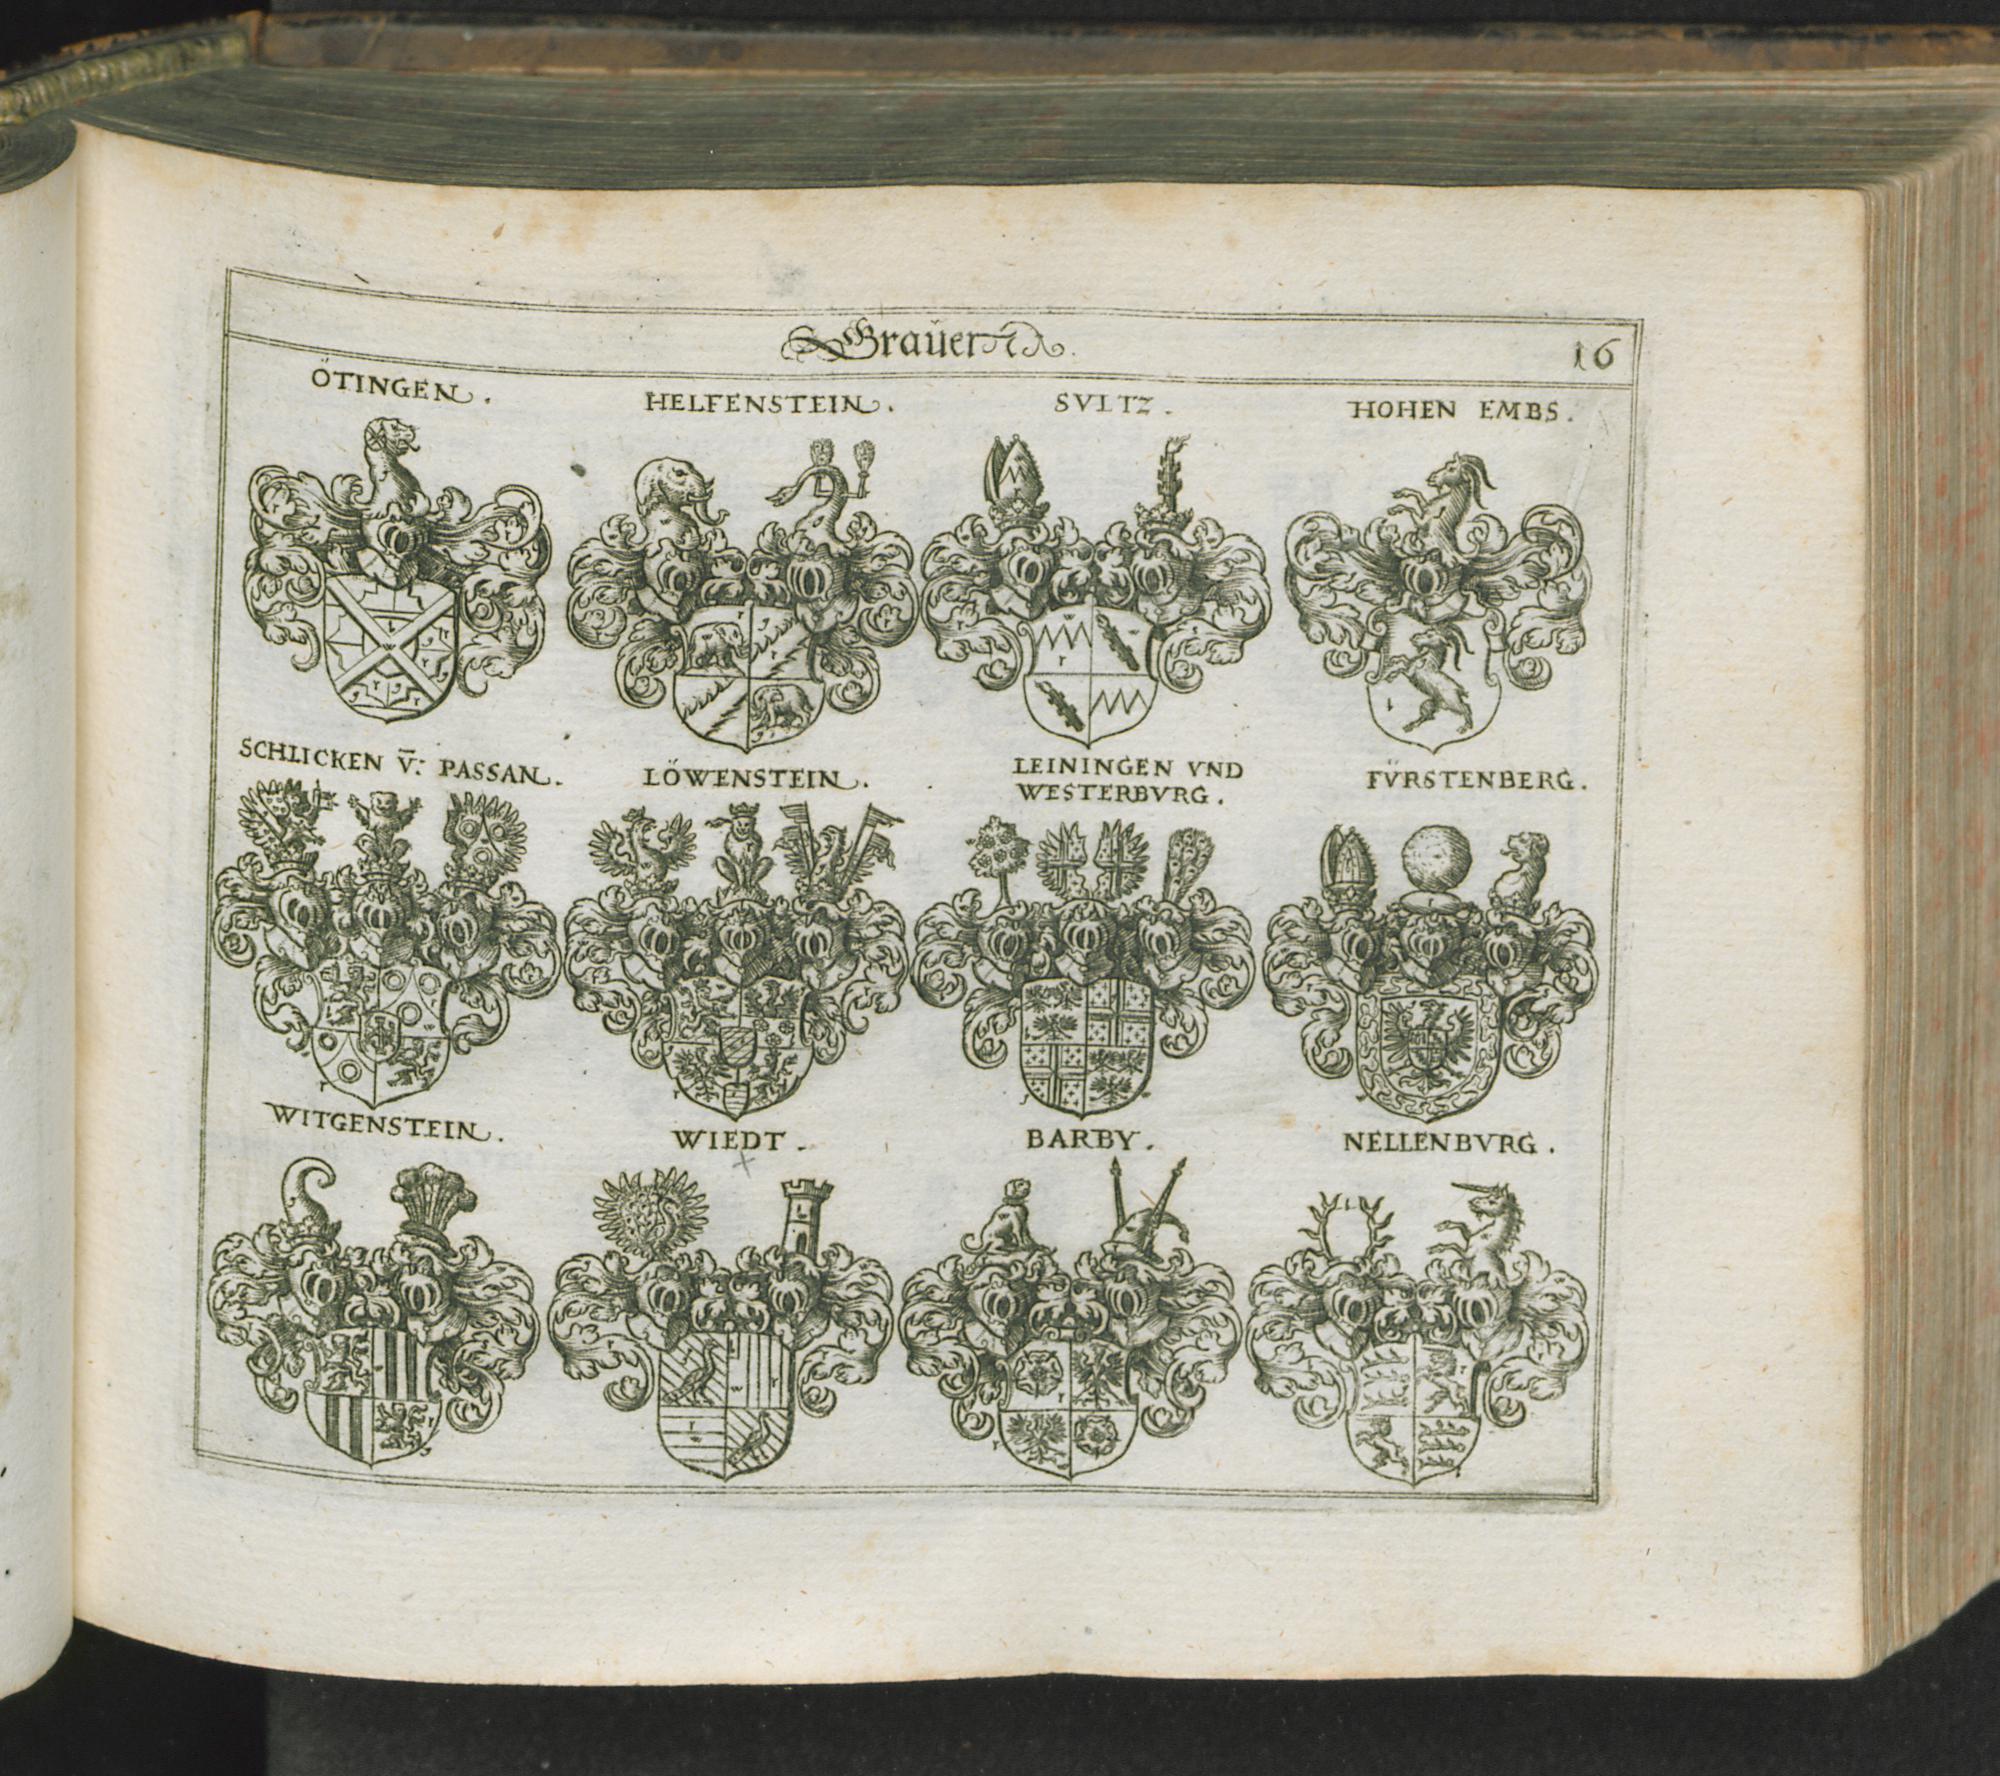 Graüen
16
ÖTINGEN.
HELFENSTEIN.
SVLTZ.
HOHEN EMBS.
SCHLICKEN V̄: PASSAN.
LÖWENSTEIN.
LEININGEN VND
WESTERBVRG.
FÜRSTENBERG.
WITGENSTEIN.
WIEDT.
BARBY.
NELLENBVRG.